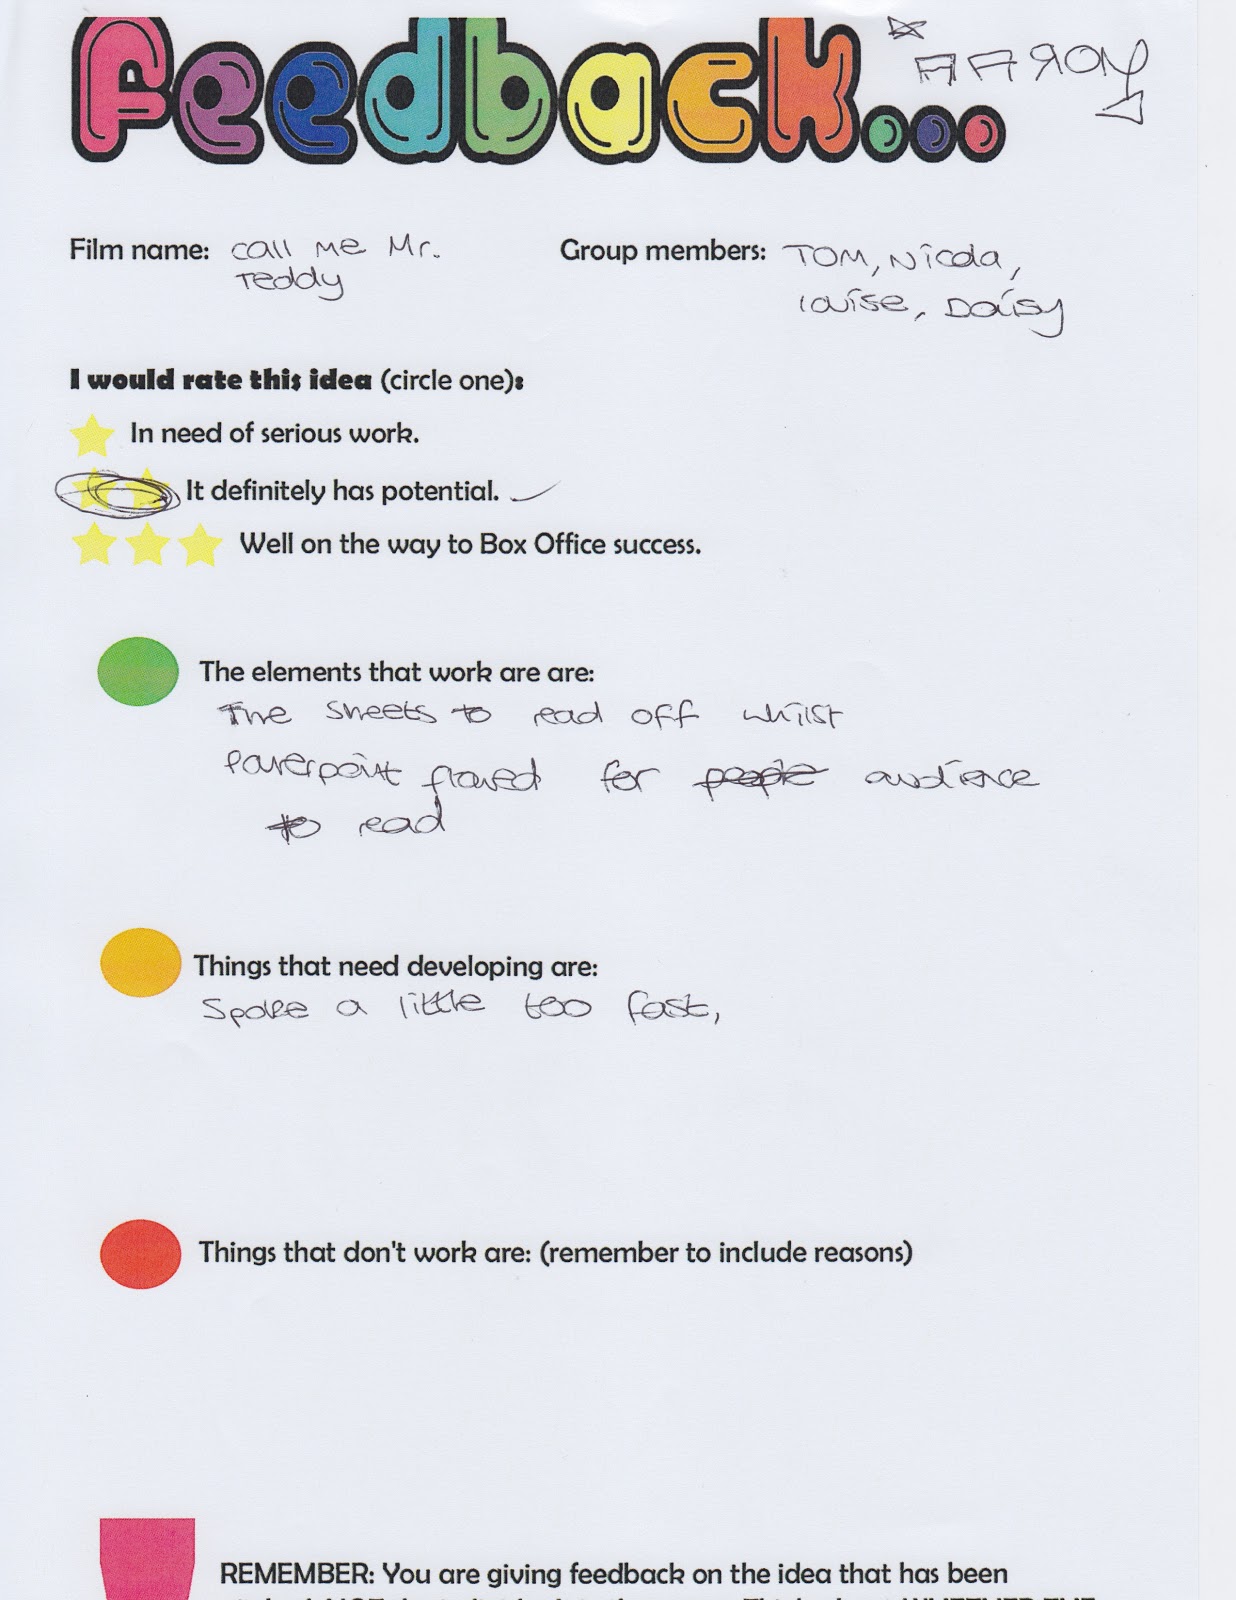 Feedback...
AARON
Film name: Call me Mr. Teddy
Group members: TOM, Nicola, louise, Daisy
I would rate this idea (circle one):
In need of serious work.
It definitely has potential.
Well on the way to Box Office success.
The elements that work are are:
The sheets to read off whilst
Powerpoint flowed for people audience
to read
Things that need developing are:
Spoke a little too fast,
Things that don't work are: (remember to include reasons)
REMEMBER: You are giving feedback on the idea that has been